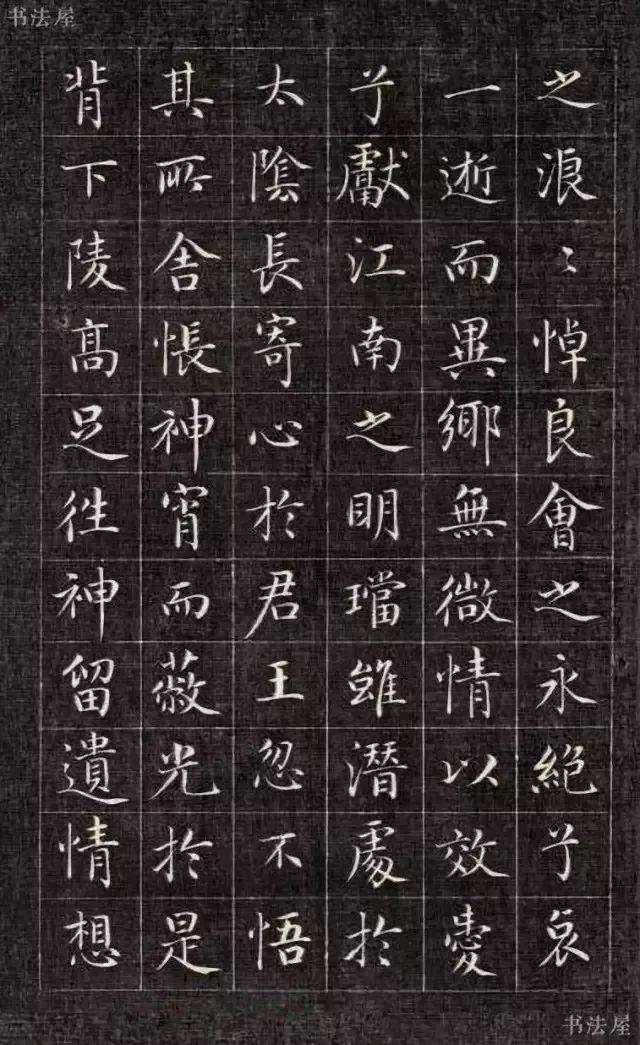 书法屋
之浪〻悼良會之永絕兮哀
一逝而異鄉無微情以效愛
兮獻江南之明璫雖潛處於
太陰長寄心於君王忽不悟
其所舍悵神宵而蔽光於是
背下陵高足往神留遺情想
书法屋